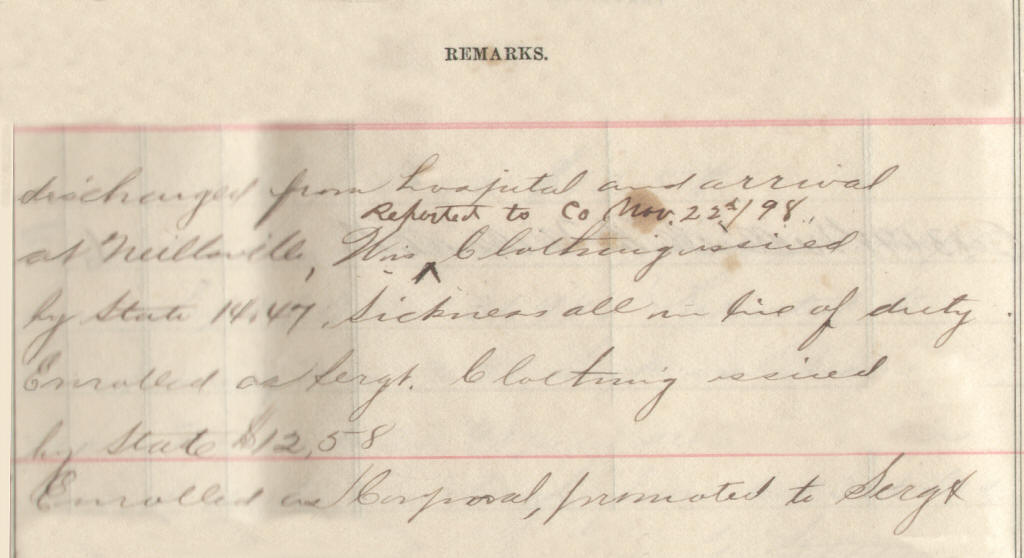 REMARKS.
discharged from hospital and arrival
Reported to Co Nov. 22d/98.
at Neillsville, Wis. Clothing issued
by State 14.47. Sickness all in line of duty.
Enrolled as Sergt. Clothing issued
by State $12,58
Enrolled as Corporal, promoted to Sergt